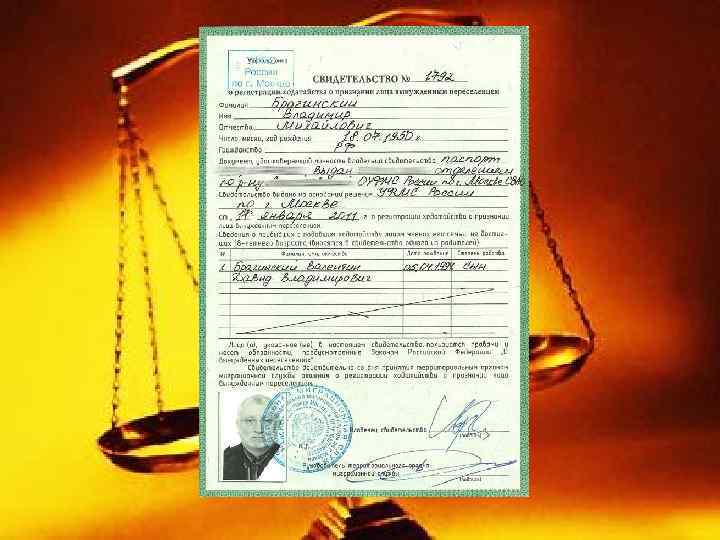 Управление
России
по г. Москве
СВИДЕТЕЛЬСТВО № 1792
о регистрации ходатайства о признании лица вынужденным переселенцем
Фамилия Брагинский
Имя Владимир
Отчество Михайлович
Число, месяц, год рождения 18.07.1950 г.
Гражданство РФ
Документ, удостоверяющий личность владельца свидетельства паспорт
выдан отделением
по р-ну ОУФМС России по г. Москве СВАО
Свидетельство выдано на основании решения УФМС России
по г. Москве
от 14 января 2011 г. о регистрации ходатайства о признании
лица вынужденным переселенцем.
Сведения о прибывших с подавшим ходатайство лицом членах его семьи, не достиг-
ших 18-летнего возраста (вносятся в свидетельство одного из родителей)
№ Фамилия, имя, отчество Дата рождения Степень родства
1. Брагинский Валентин 05.04.1994 сын
Давид Владимирович
Лицо (а), указанное (ые) в настоящем свидетельстве, пользуется правами и
несет обязанности, предусмотренные Законом Российской Федерации "О
вынужденных переселенцах".
Свидетельство действительно со дня принятия территориальным органом
миграционной службы решения о регистрации ходатайства о признании лица
вынужденным переселенцем.
Владелец свидетельства
(подпись)
Руководитель территориального органа
миграционной службы
(подпись)